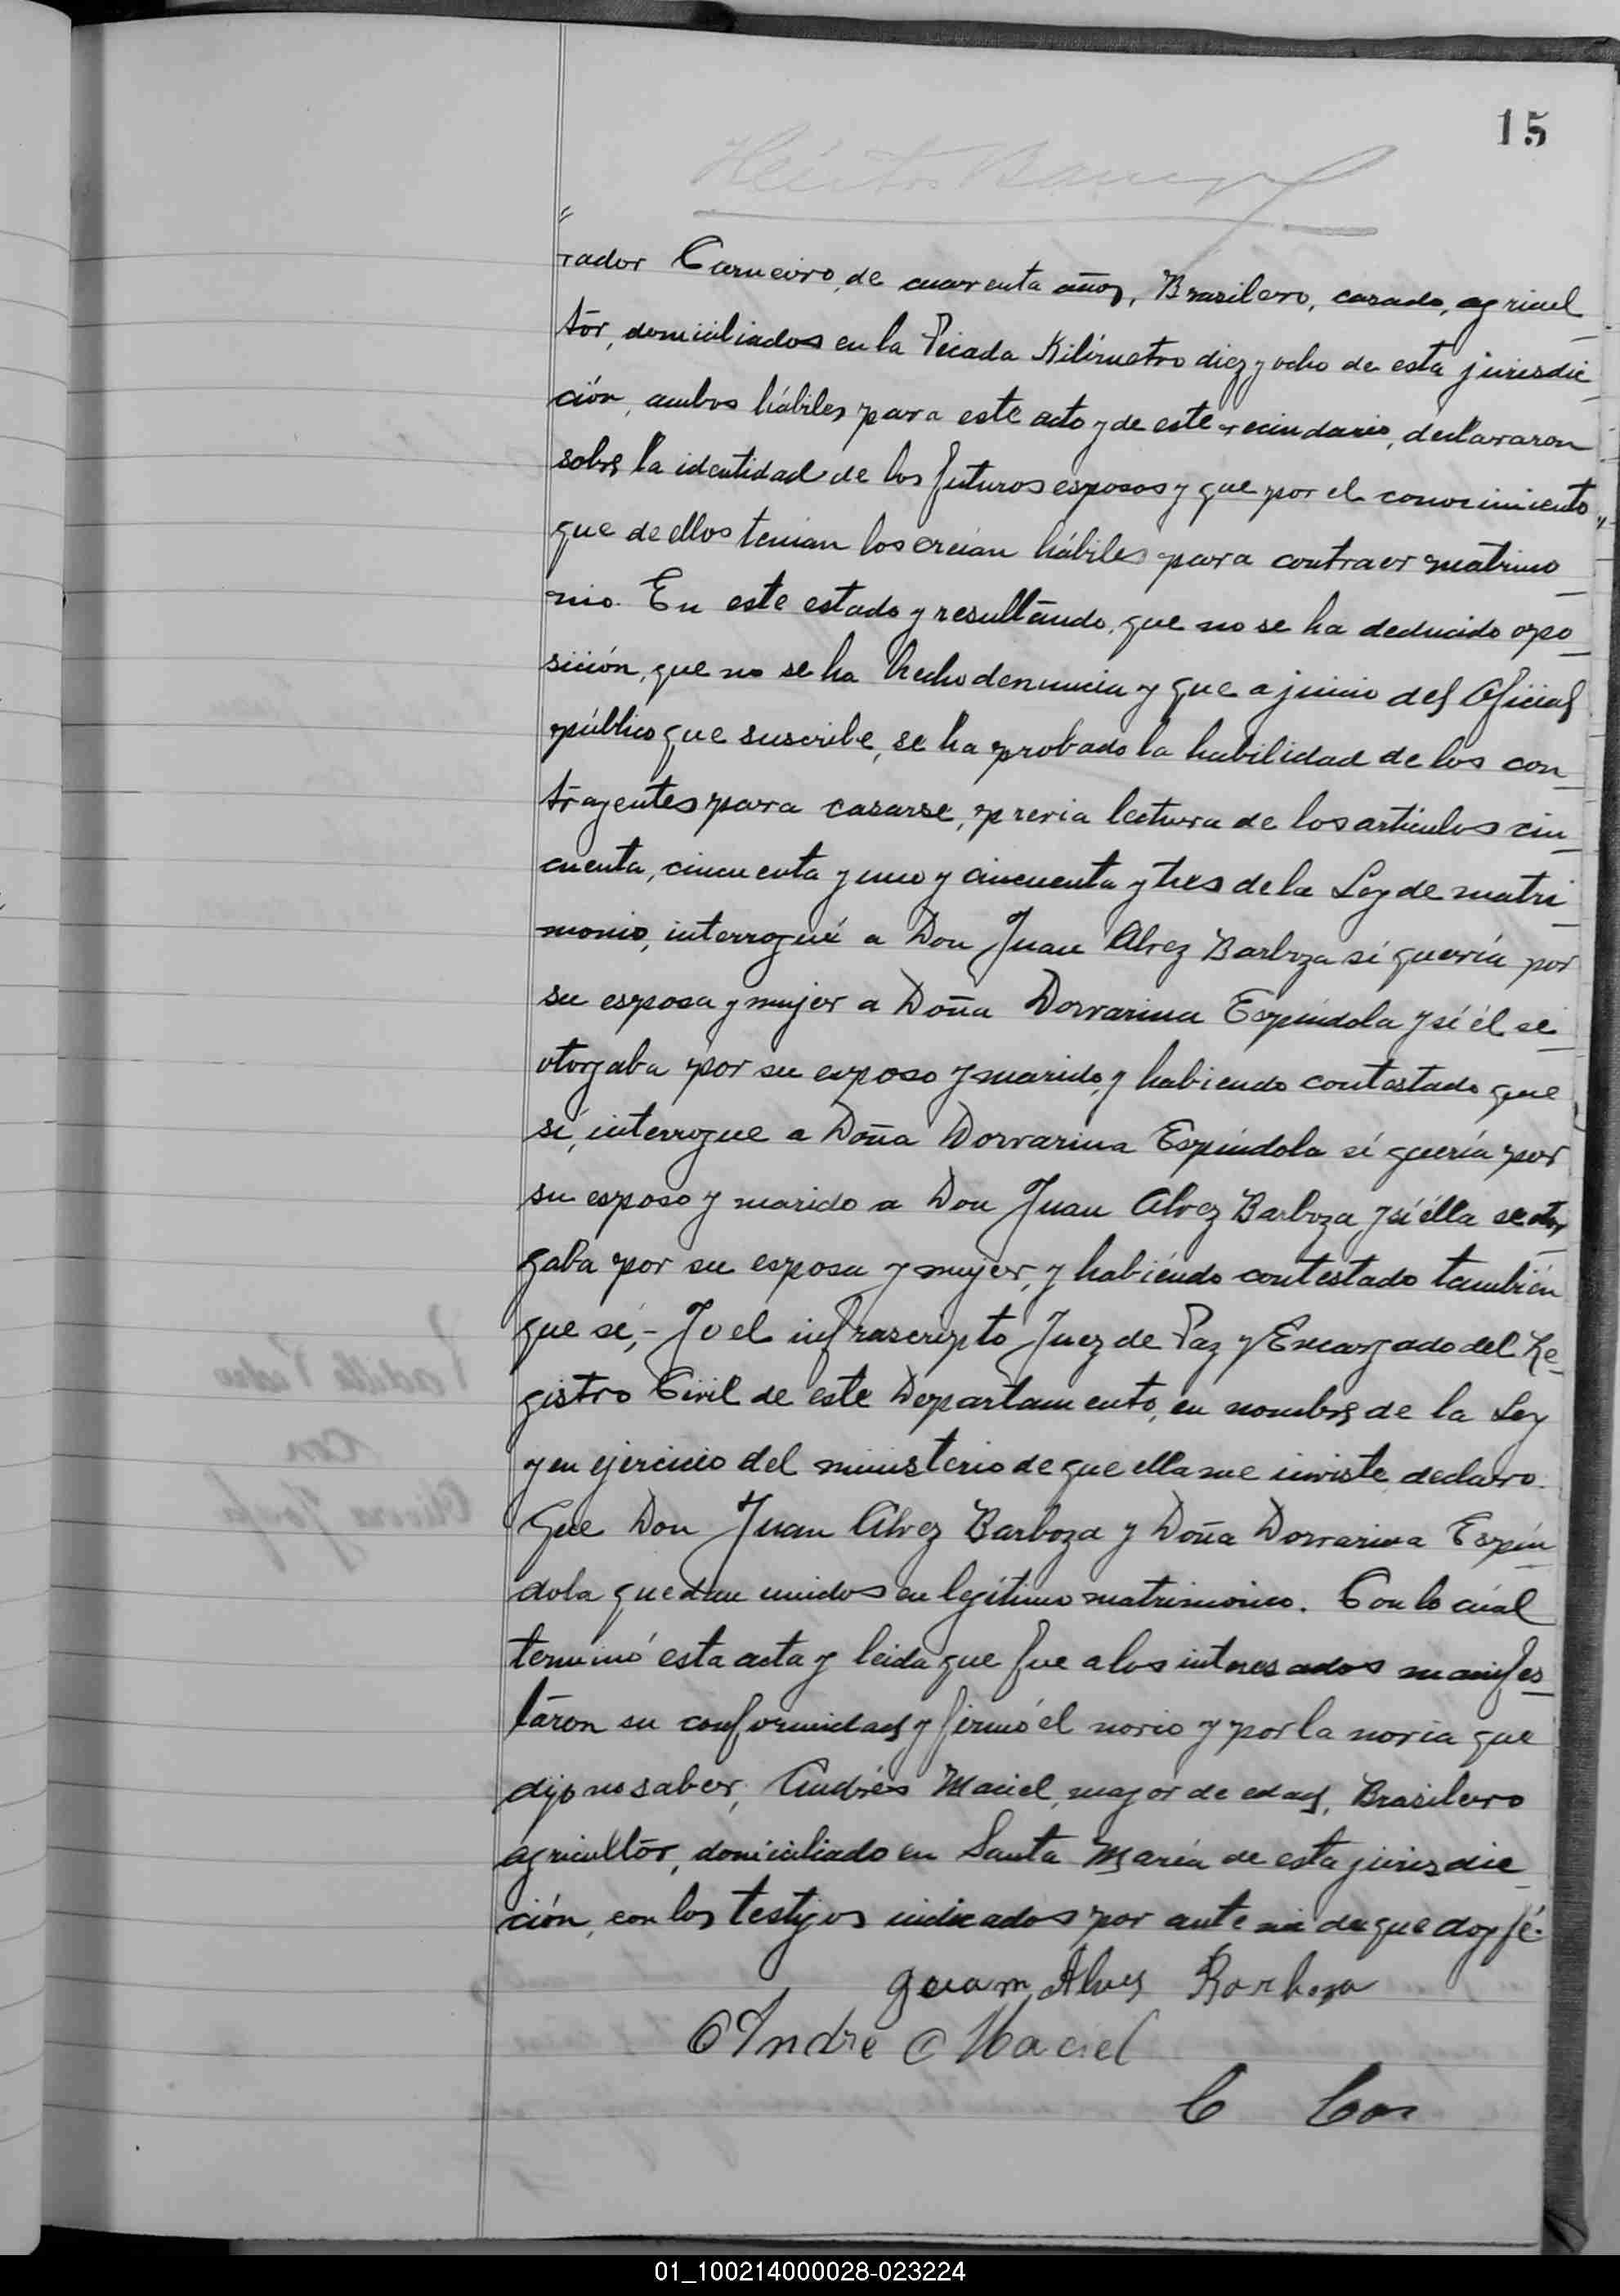 15
=
rador Carneiro, de cuarenta años, Brasilero, casado, agricul
tor, domiciliados en la Picada Kilómetro diez y ocho de esta jurisdic
ción, ambos hábiles para este acto y de este vecindario, declararon
sobre la identidad de los futuros esposos y que por el conocimiento
que de ellos tenian los creian hábiles para contraer matrimo
nio. En este estado y resultando, que no se ha deducido opo
sición, que no se ha hecho denuncia y que a juicio del Oficial
público que suscribe, se ha probado la habilidad de los con
trayentes para casarse, previa lectura de los articulos cin
cuenta, cincuenta y uno y cincuenta y tres de la Ley de matri
monio, interrogué a Don Juan Alvez Barboza si quería por
su esposa y mujer a Doña Dorvarina Espíndola y si él se
otorgaba por su esposo y marido, y habiendo contestado que
si, interrogue a Doña Dorvarina Espíndola si quería por
su esposo y marido a Don Juan Alvez Barboza y si élla se otor
gaba por su esposa y mujer, y habiéndo contestado también
que sé,- Yo el infrascripto Juez de Paz y Encargado del Re
gistro Civil de este Departamento, en nombre de la Ley
y en ejercicio del ministerio de que ella me inviste, declaro.
Que Don Juan Alvez Barboza y Doña Dorvarina Espín
dola quedan unidos en legítimo matrimonio. Con lo cuál
terminó esta acta y leida que fue a los interesados manifes
taron su conformidad y firmó el novio y por la novia que
dijo no saber, Andrés Maciel, mayor de edad, Brasilero
agricultor, domiciliado en Santa María de esta jurisdic
ción, con los testigos indicados por ante mi de que doy fé.
Juam Alves Barboza
Andre Maciel
01_100214000028-023224